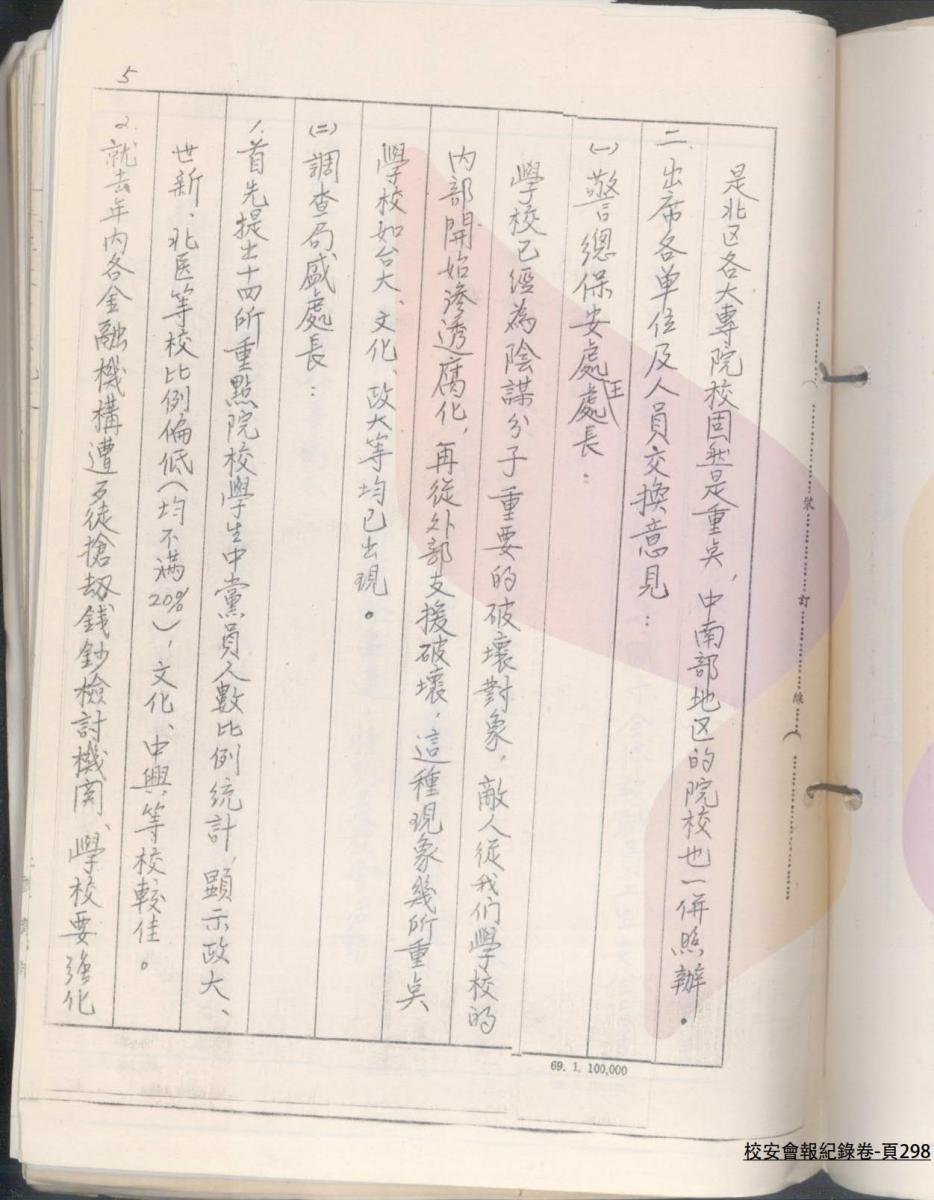 5
是北区各大專院校固然是重点，中南部地区的院校也一併照辦。
二、出席各單位及人員交換意見：
(一)警總保安處王處長：
學校已經為陰謀分子重要的破壞對象，敵人從我們學校的
內部開始滲透腐化，再從外部支援破壞，這種現象幾所重点
學校如台大、文化、政大等均已出現。
(二)調查局盛處長：
1.首先提出十四所重點院校學生中黨員人數比例統計，顯示政大、
世新、北医等校比例偏低(均不滿20%)，文化、中興等校較佳。
2.就去年內各金融機構遭歹徒搶劫錢鈔檢討機関、學校要強化
裝訂線
69. 1. 100,000
校安會報紀錄卷-頁298